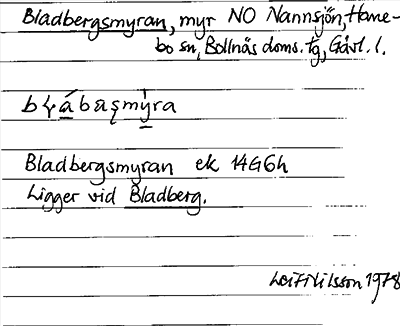 Bladbergsmyran, myr NO Nannsjön, Hane-
bo sn, Bollnäs doms. tg, Gävl. l.
Bladbergsmyran ek 14G6h
Ligger vid Bladberg.
Leif Nilsson 1978